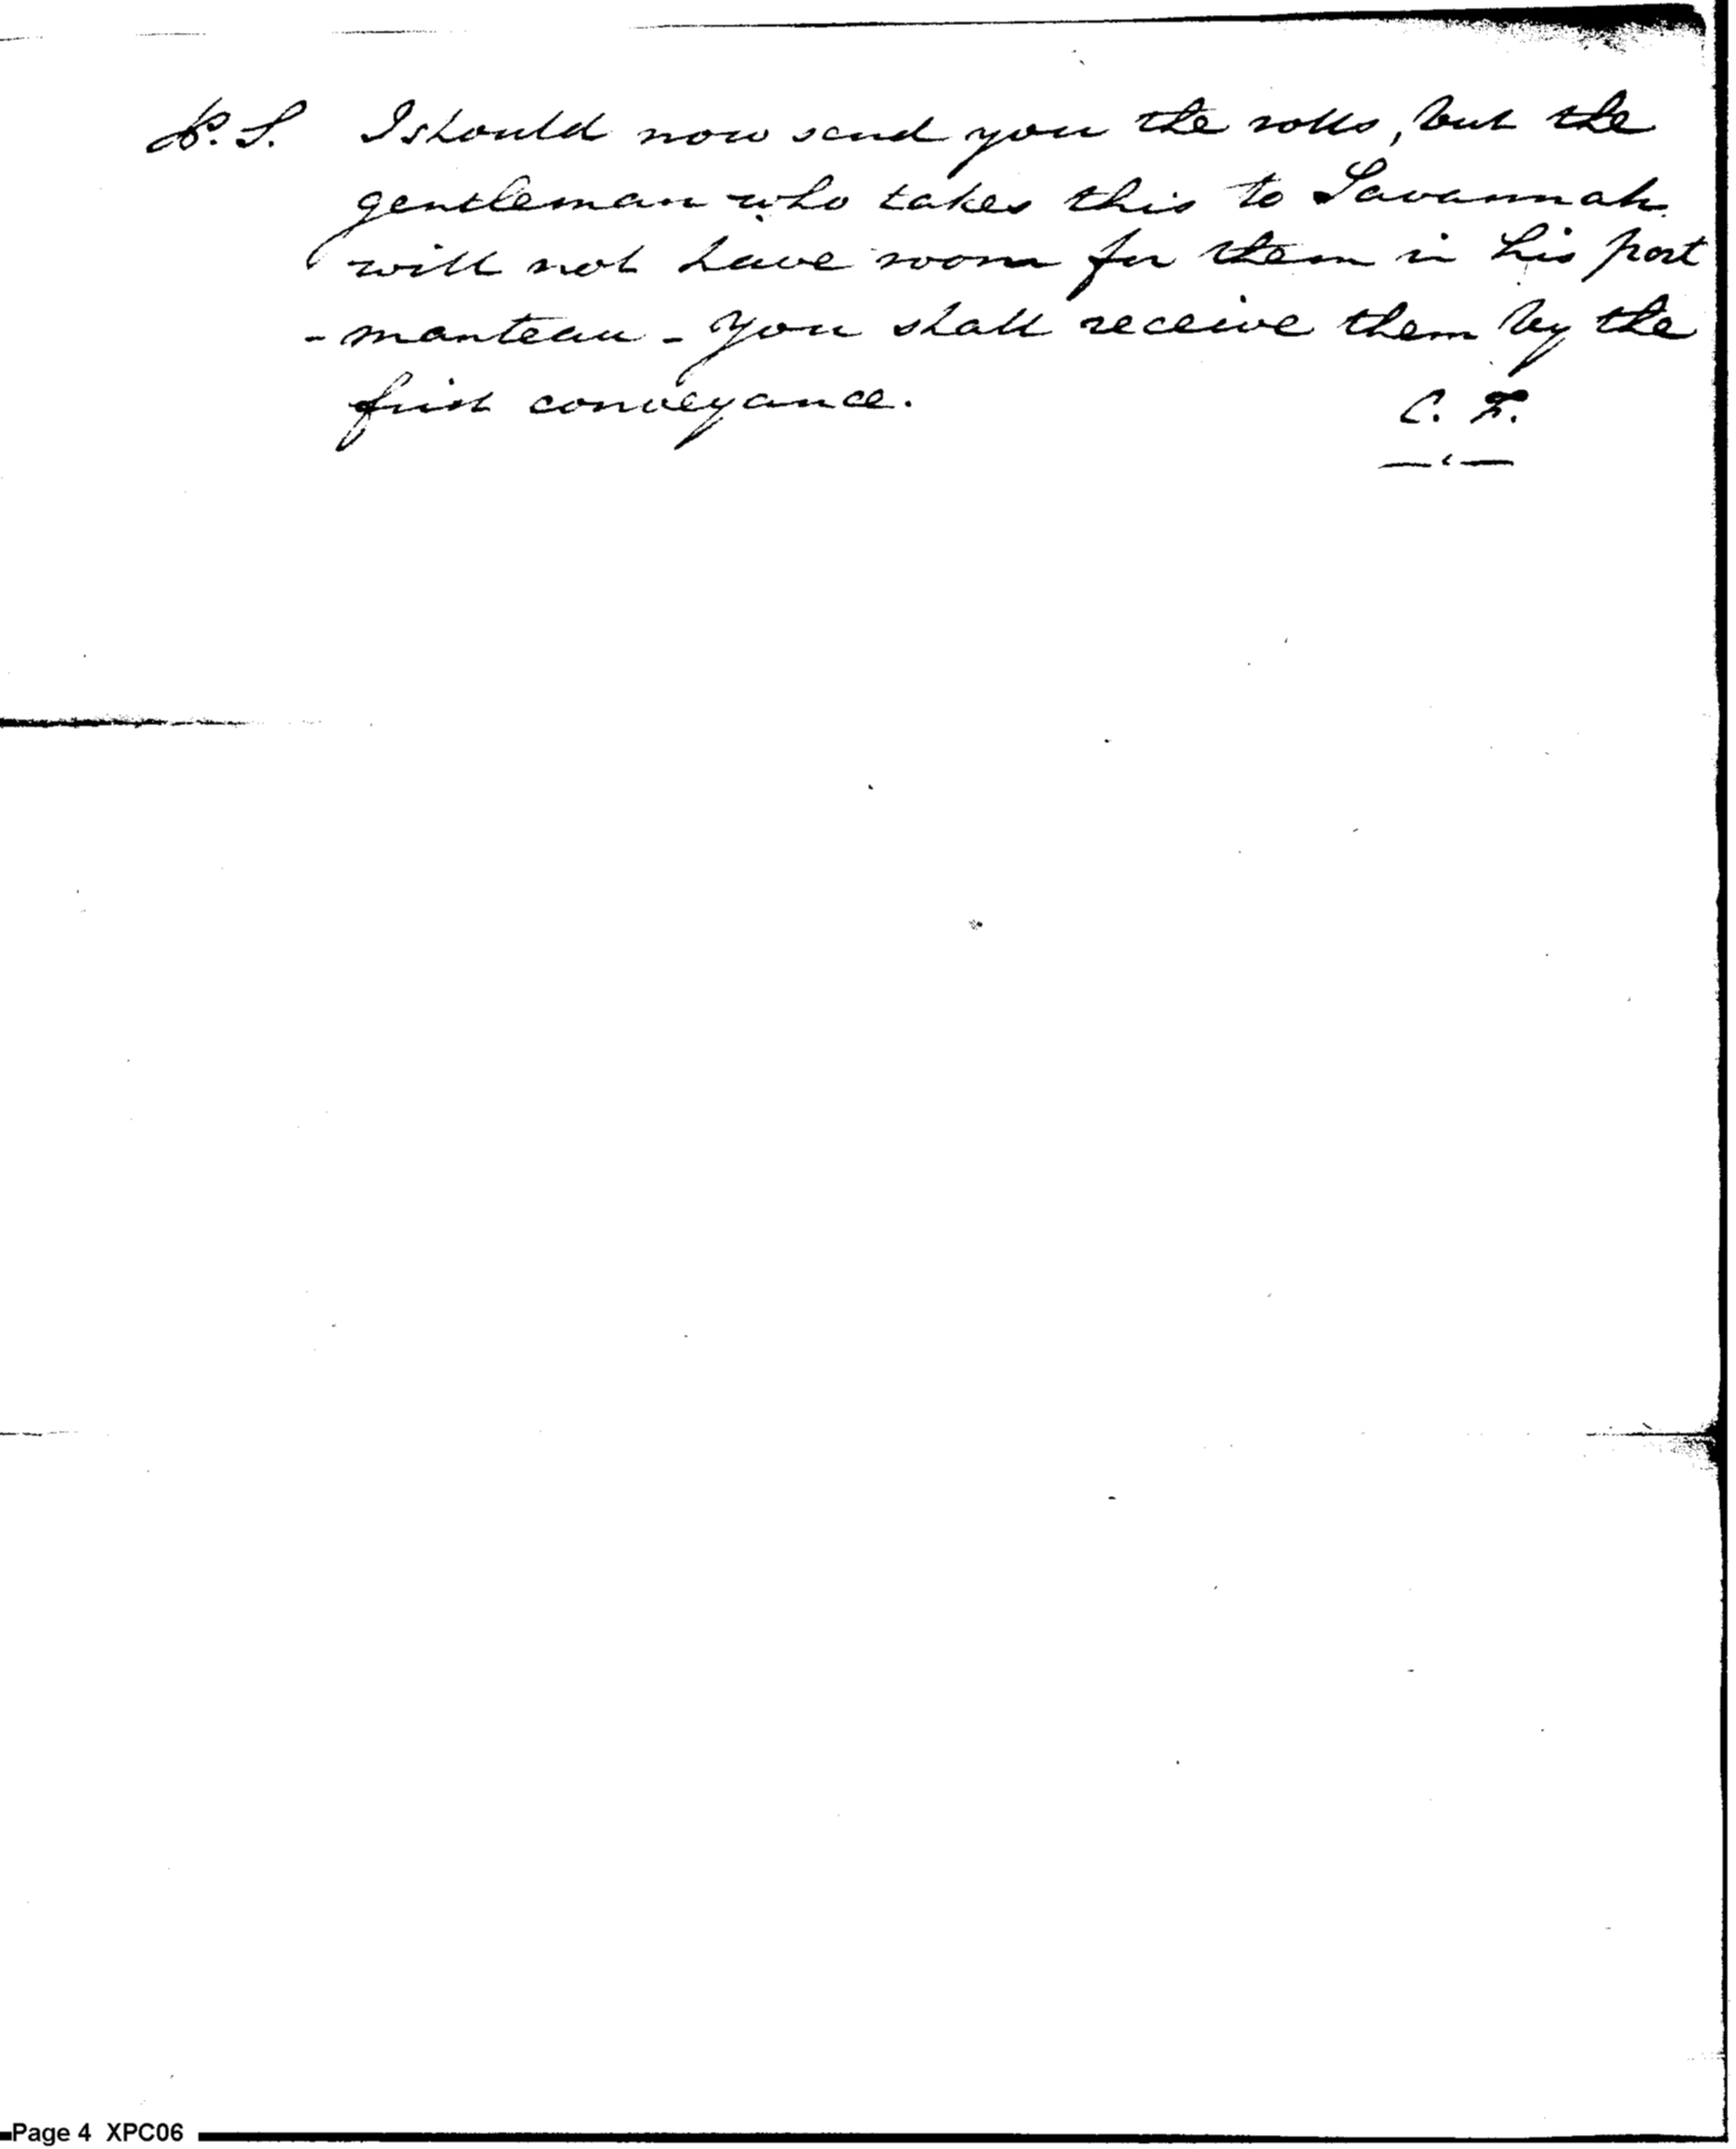 P.S. I should now send you the rolls, but the
gentleman who takes this to Savannah
will not have room for them in his port
- manteau - You shall receive them by the
first conveyance.
C. F.
Page 4 XPC06